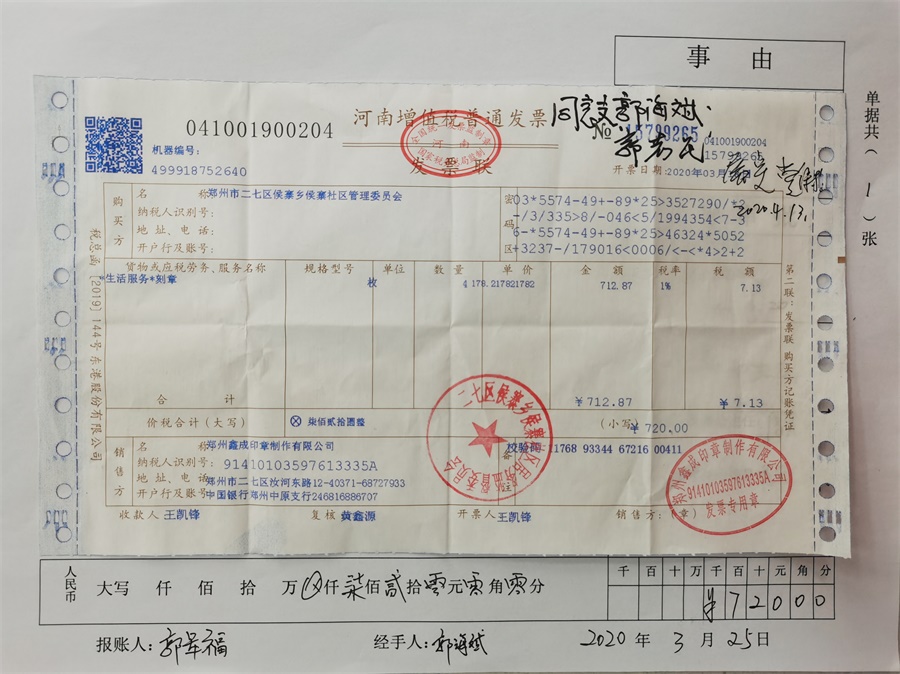 事 由
单据共（1）张
041001900204
河南增值税普通发票
发票联
同意 郭海斌
№ 15799265
041001900204
15799265
机器编号：
499918752640
开票日期：2020年03月
2020.4.13.
税总函［2019］144号 东港股份有限公司
购买方
名 称：郑州市二七区侯寨乡侯寨社区管理委员会
纳税人识别号：
地 址、电 话：
开户行及账号：
密码区
03*5574-49+-89*25>3527290/*2
-/3/335>8/-046<5/1994354<7-3
6-*5574-49+-89*25>46324*5052
+3237-/179016<0006/<-<*4>2+2
货物或应税劳务、服务名称 规格型号 单位 数 量 单 价 金 额 税率 税 额
*生活服务*刻章 枚 4 178.217821782 712.87 1% 7.13
合 计 ￥712.87 ￥7.13
价税合计（大写） ⊗ 柒佰贰拾圆整 （小写）￥720.00
第二联：发票联 购买方记账凭证
销售方
名 称：郑州鑫成印章制作有限公司
纳税人识别号：91410103597613335A
地 址、电 话：郑州市二七区汝河东路12-40371-68727933
开户行及账号：中国银行郑州中原支行246816886707
备
校验码 11768 93344 67216 00411
郑州鑫成印章制作有限公司
91410103597613335A
发票专用章
收款人：王凯锋 复核：黄鑫源 开票人：王凯锋 销售方：（章）
人民币 大写 仟 佰 拾 万⊗仟柒佰贰拾零元零角零分
千 百 十 万 千 百 十 元 角 分
￥ 7 2 0 0 0
报账人：郭军福 经手人：郭海斌 2020 年 3 月 25日